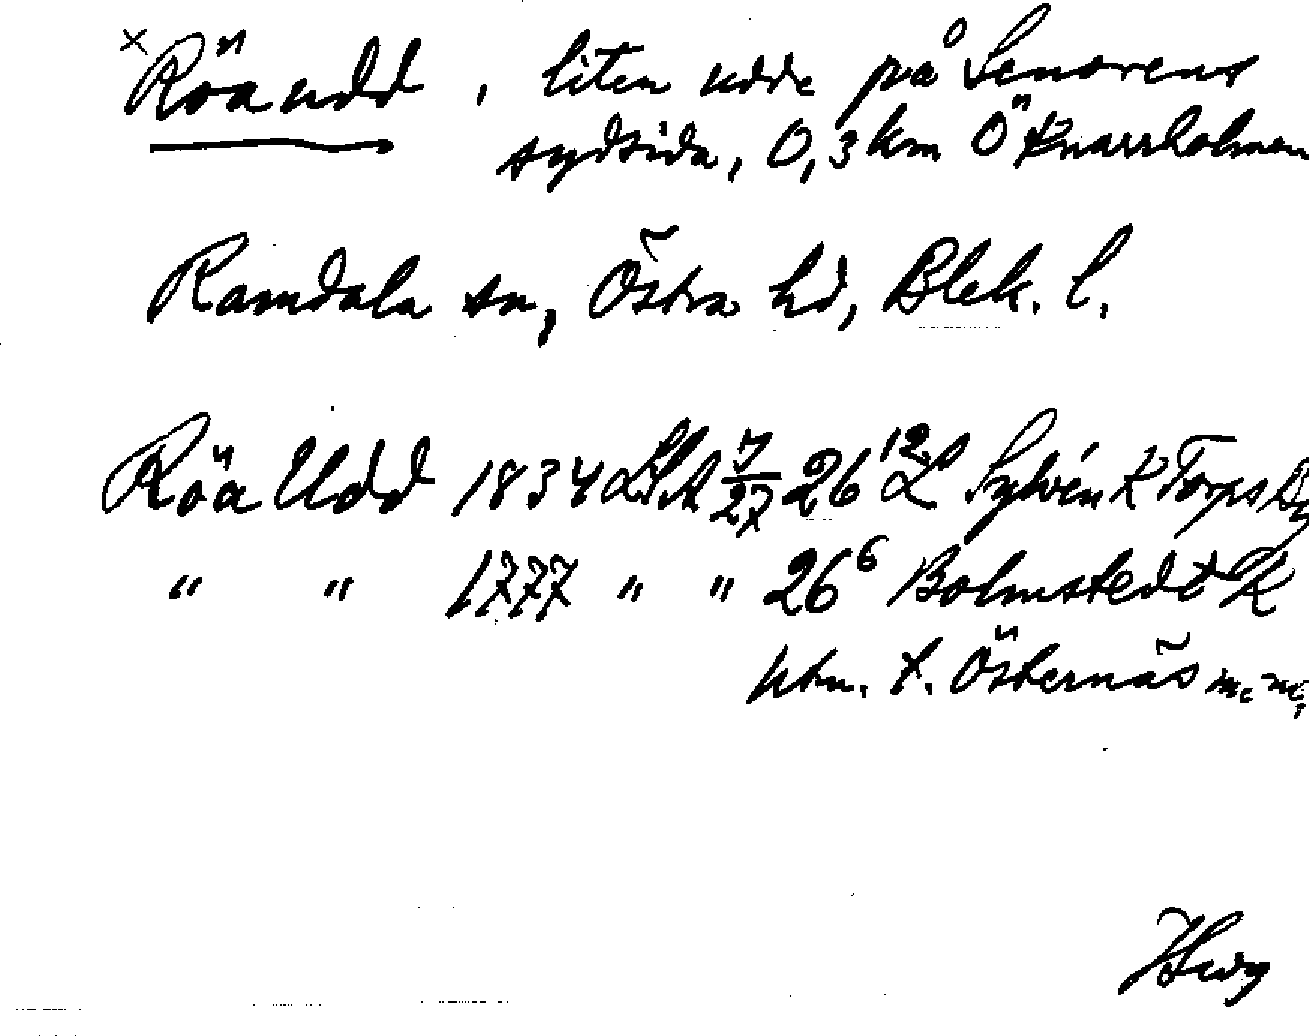 × Röaudd, liten udde på Senorens
sydsida, 0,3 km Ö Knarrholmen
Ramdala sn, Östra hd, Blek. l.
Röa Udd 1834 LSA 7/27 26¹² L Sylvén K Torps
" " 1777 " " 26⁶ Bolmstedt K
htn. t. Östernäs m. m.